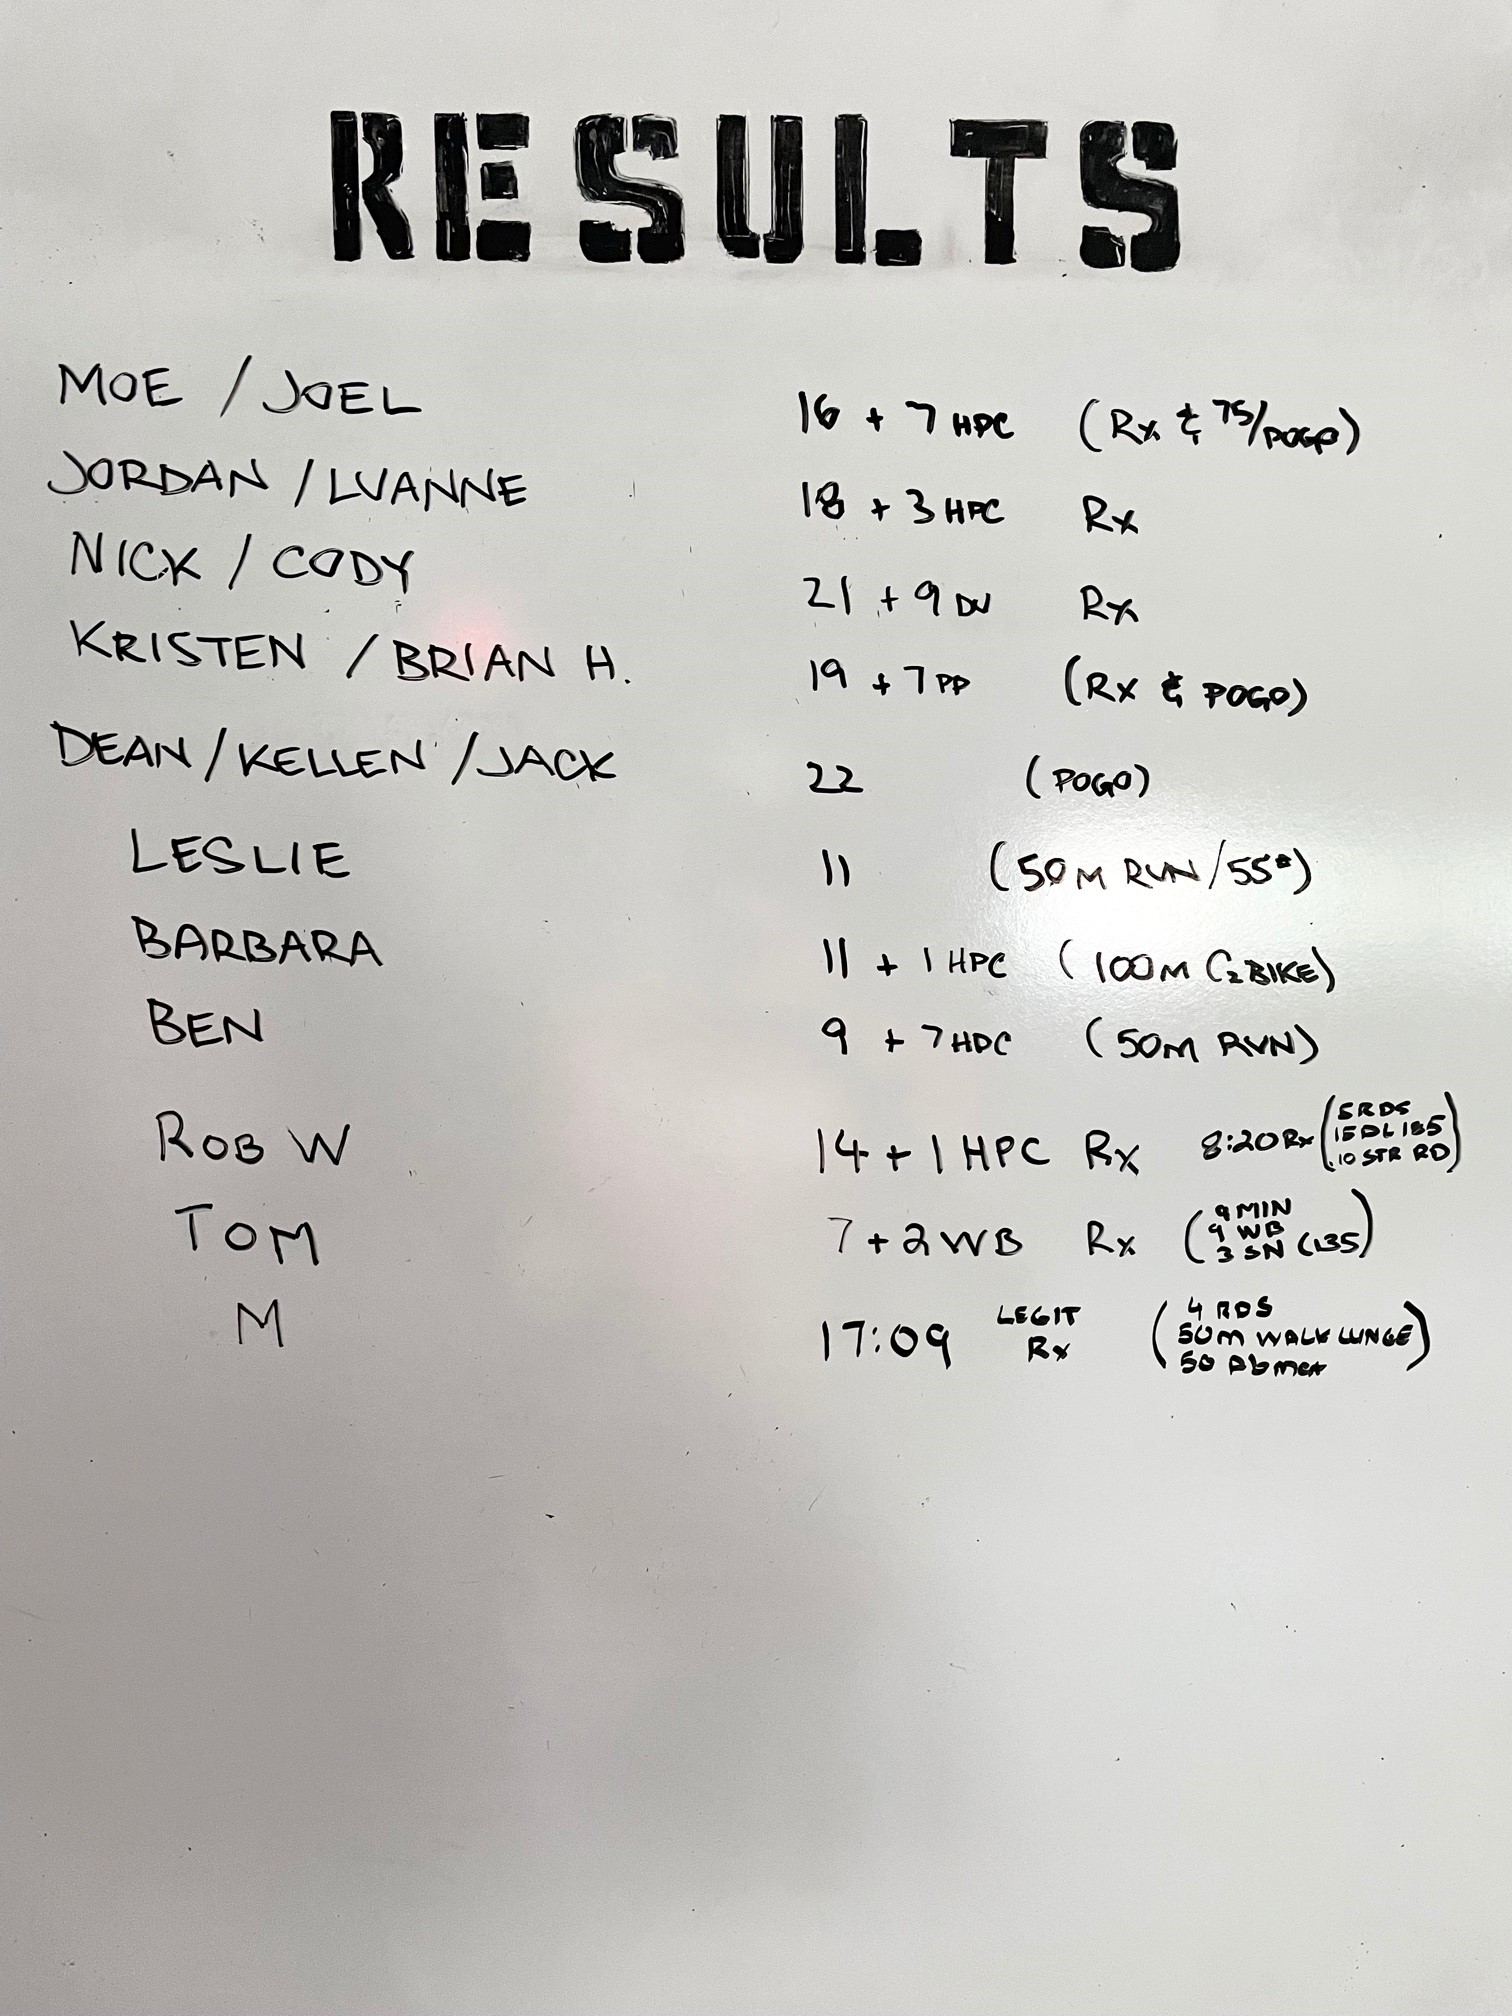 RESULTS
MOE / JOEL 16 + 7 HPC (Rx & 75/POGO)
JORDAN / LUANNE 18 + 3 HPC Rx
NICK / CODY 21 + 9 DU Rx
KRISTEN / BRIAN H. 19 + 7 PP (Rx & POGO)
DEAN / KELLEN / JACK 22 (POGO)
LESLIE 11 (50M RUN/55#)
BARBARA 11 + 1 HPC (100M C2 BIKE)
BEN 9 + 7 HPC (50M RUN)
ROB W 14 + 1 HPC Rx 8:20 Rx (5 RDS
15 DL 185
10 STR RD)
TOM 7 + 2 WB Rx (9 MIN
9 WB
3 SN (135)
M 17:09 LEGIT Rx (4 RDS
50M WALK LUNGE)
50